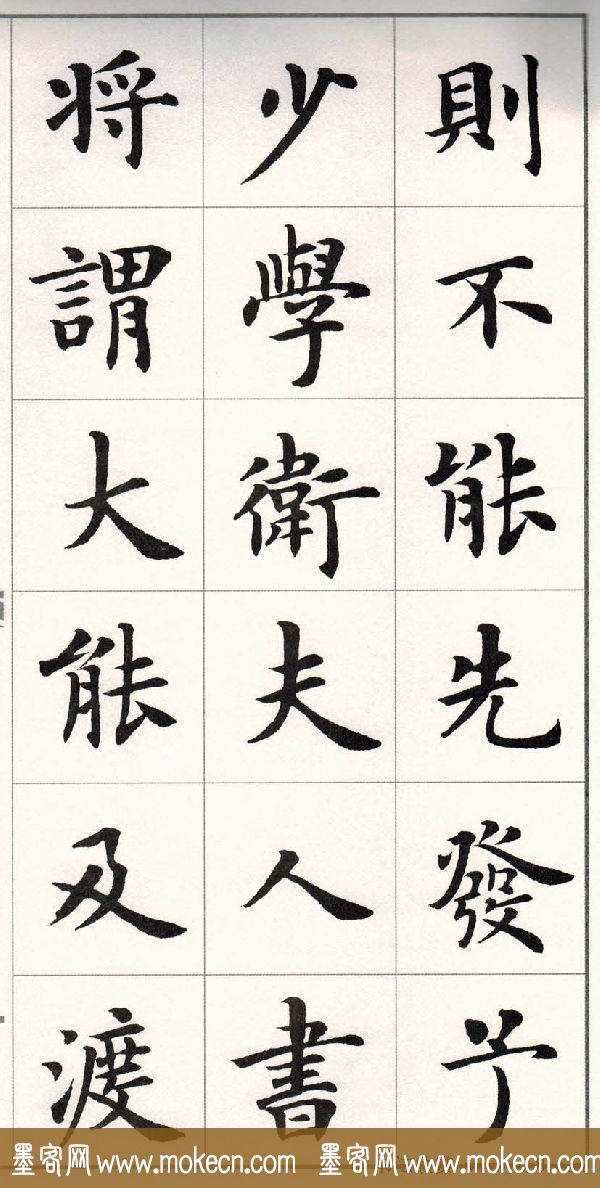 則不能先發予
少學衛夫人書
将謂大能及渡
墨客网 www.mokecn.com 墨客网 www.mokecn.com